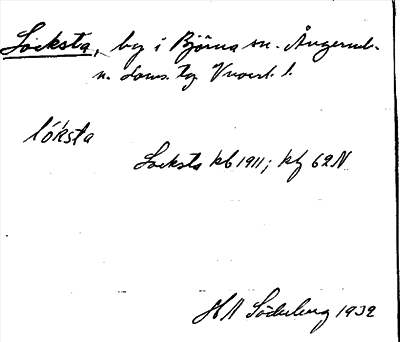 Locksta, by i Björna sn. Ångerml.
n. doms. tg Vnorrl. l.
lóksta
Locksta kb 1911; kf 62N
HN Söderberg 1932